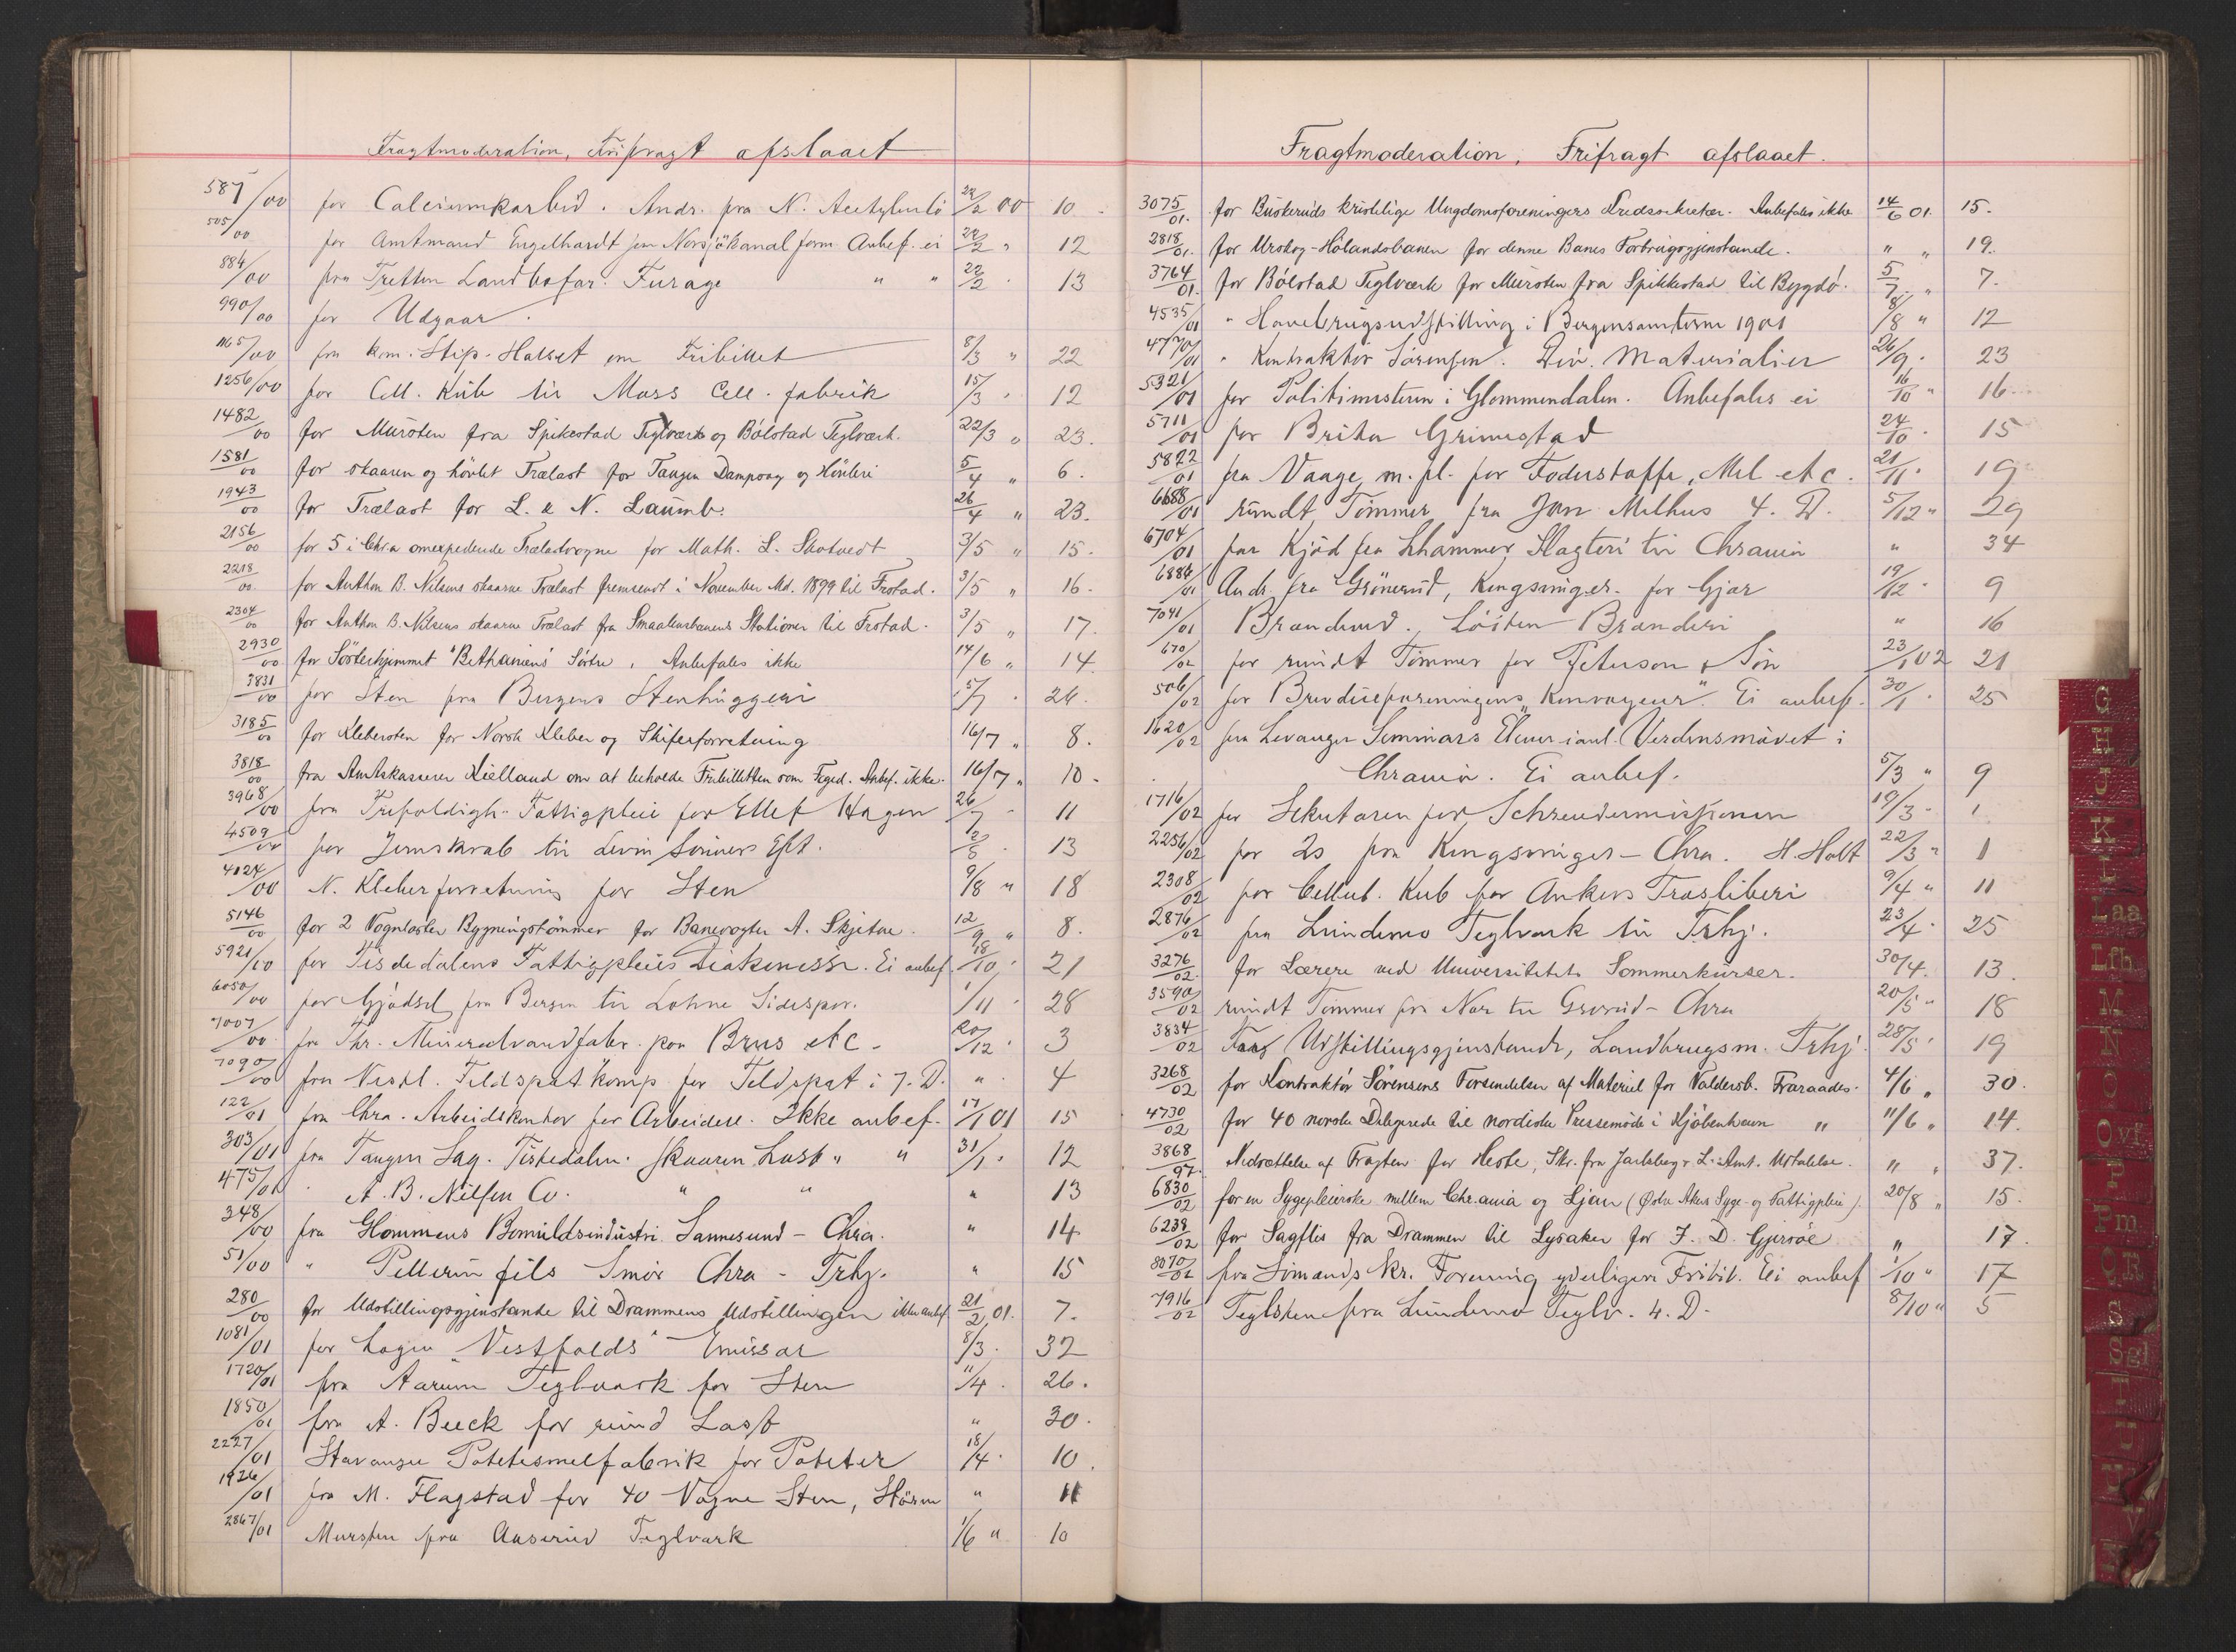 Fragtmoderation, Frifragt afslaaet
587/00 for Calciumkarbid. Andr. fra N. Acetylenbl 22/2 00 10.
505/00 for Amtmand Engelhardt som Norsjökanal form. Anbef. ei 22/2 " 12
884/00 fra Tretten Landbofor. Furage " " 22/2 13
990/00 for Udgaar.
1165/00 fra kom. Stip. Halset om Fribillet 8/3 " 22
1256/00 for Cell. Kub til Moss Cell. fabrik 15/3 12
1482/00 for Mursten fra Spikestad Teglværk og Bölstad Teglværk. 22/3 " 23.
1581/00 for skaaren og hövlet Trælast for Tangen Dampsag og Hövleri 5/4 " 6.
1943/00 for Trælast for L. & N. Laumb. 26/4 " 23.
2156/00 for 5 i Chra omexpederede Trælastvogne for Math. L. Skotvedt 3/5 " 15.
2218/00. for Anthon B. Nilsens skaarne Trælast fremsendt i November Md. 1899 til Frstad. 3/5 " 16.
2304/00 for Anthon B. Nilsens skaarne Trælast fra Smaalensbanens Stationer til Frstad. 3/5 " 17.
2930/00 for Sösterhjemmet "Bethaniens" Söstre. Anbefales ikke 14/6 " 14.
3831/00 for Sten fra Bergens Stenhuggeri 5/7 26.
3185/00 for Klebersten for Norsk Kleber og Skiferforretning 16/7 " 8.
3818/00 fra Amtskasserer Kielland om at beholde Fribilletten som Foged. Anbef. ikke. 16/7 " 10.
3968/00 fra Trefoldigh. Fattigpleie for Ellef Hagen 26/7 11
4509/00 for Jernskrab til Levin Sönners Eft. 2/8 13
4124/00 N. Kleberforretning for Sten 9/8 " 18
5146/00 for 2 Vognladn Bygningstömmer for Banevogter A. Skjetne. 12/9 " 8.
5921/00 for Tisdedalens Fattigpleies Diakonisse. Ei anbef. 18/10 21
6050/00 for Gjödsel fra Bergen til Lohne Sidespor. 1/11 28
7007/00 fra Thr. Mineralvandfabr. paa Brus etc. 20/12 3
7090/00 fra Nestl. Feldspatkomp for Feldspat i 7. D. " 4
122/01 fra Chra. Arbeidskontor for Arbeidere. Ikke anbef. 17/1 01 15
303/01 fra Tangen Sag. Tistedalen. skaaren Last " " 31/1 12
475/01 A. B. Nilsen Co. " " " 13
348/00 fra Glommens Bomuldsindustri. Sannesund - Chra. " 14
51/00 " Pellerin fils Smör Chra - Trhj. " 15
280/00 for Udstillingsgjenstande til Drammens Udstillingen ikke anbef. 21/2 01. 7.
1081/01 for Logen "Vestfolds" Emissær 8/3. 32
1720/01 fra Aarum Teglværk for Sten 11/4. 26.
1850/01 fra A. Beeck for rund Last " 30.
2227/01 Stavanger Potetesmelfabrik for Poteter 18/4. 10.
1926/01 fra M. Flagstad for 40 Vogne Sten, Stören " 11
2867/01 Mursten fra Aaserud Teglværk 1/6 " 10
Fragtmoderation, Frifragt afslaaet.
3075/01. for Buskeruds kristelige Ungdomsforeningers Kredssekretær. Anbefales ikke 14/6 01. 15.
2818/01. for Urskog-Hölandsbanen for denne Banes Forbrugsgjenstande. " " 19.
3764/01. for Bölstad Teglværk for Mursten fra Spikkestad til Bygdö. 5/7 " 7.
4535/01 " Havebrugsudstilling i Bergensamterne 1901 8/8 " 12
4770/01 " Kontraktör Sörensen. Div. Materialier 26/9. 23
5321/01 for Politimesteren i Glommendalen. Anbefales ei 16/10 " 16
5711/01 for Brita Grimestad 24/10 15
5822/01 fra Vaage m. fl. for Foderstoffe, Mel etc. 21/11 19
6688/01 rundt Tömmer fra Jon Melhus 4. D. 5/12 " 29
6704/01 for Kjöd fra Lhammer Slagteri til Chrania " 34
6886/01 Andr. fra Grönerud, Kongsvinger. for Gjær 19/12 9
7041/01 Brændved. Löiten Brænderi " 16
670/02 for rundt Tömmer for Peterson & Sön 23/1 02 21
506/02 for Brevdueforeningens "Konvoyeur". Ei anbef. 30/1 25
1620/02 fra Levanger Seminars Elever i anl. Verdensmövet i
Chrania. Ei anbef. 5/3 " 9
1716/02 for Sekretæren for Schreudermissionen 19/3 1
2256/02 for 2s fra Kongsvinger - Chra. H. Holt 22/3 " 1
2308/02 for Cellul. Kub for Ankers Træsliberi 9/4 " 11
2876/02 fra Lundemo Teglværk til Trhj. 23/4 25
3276/02. for Lærere ved Universitetets Sommerkurser. 30/4. 13.
3590/02 rundt Tömmer fra Nor til Grorud - Chra 20/5 " 18
3834/02 Udstillingsgjenstande, Landbrugsm. Trhj. 28/5 19
3268/02 for Kontraktör Sörensens Forsendelser af Materiel for Valdersb. Fraraades. 4/6 " 30.
4730/02 for 40 norske Delegerede til nordiske Pressemöde i Kjöbenhavn " 11/6 " 14.
3868/97. Nedsættelse af Fragten for Heste, Skr. fra Jarlsberg & L. Amt. Udtalelse. " " 37.
6830/02 for en Sygepleierske mellem Chr.ania og Ljan (Östre Akers Syge- og Fattigpleie). 20/8 " 15.
6238/02 for Sagflis fra Drammen til Lysaker for J. D. Gjersöe " 17.
8070/02 fra Sömands Kr. Forening yderligere Fribil. Ei anbef 1/10 " 17
7916/02 Teglsten fra Lundemo Teglv. 4. D. 8/10 " 5
G
H
J
K
L
Laa
Lfh
M
N
O
Ovf.
P
Pm
QR
S
Sgl
T
U
V